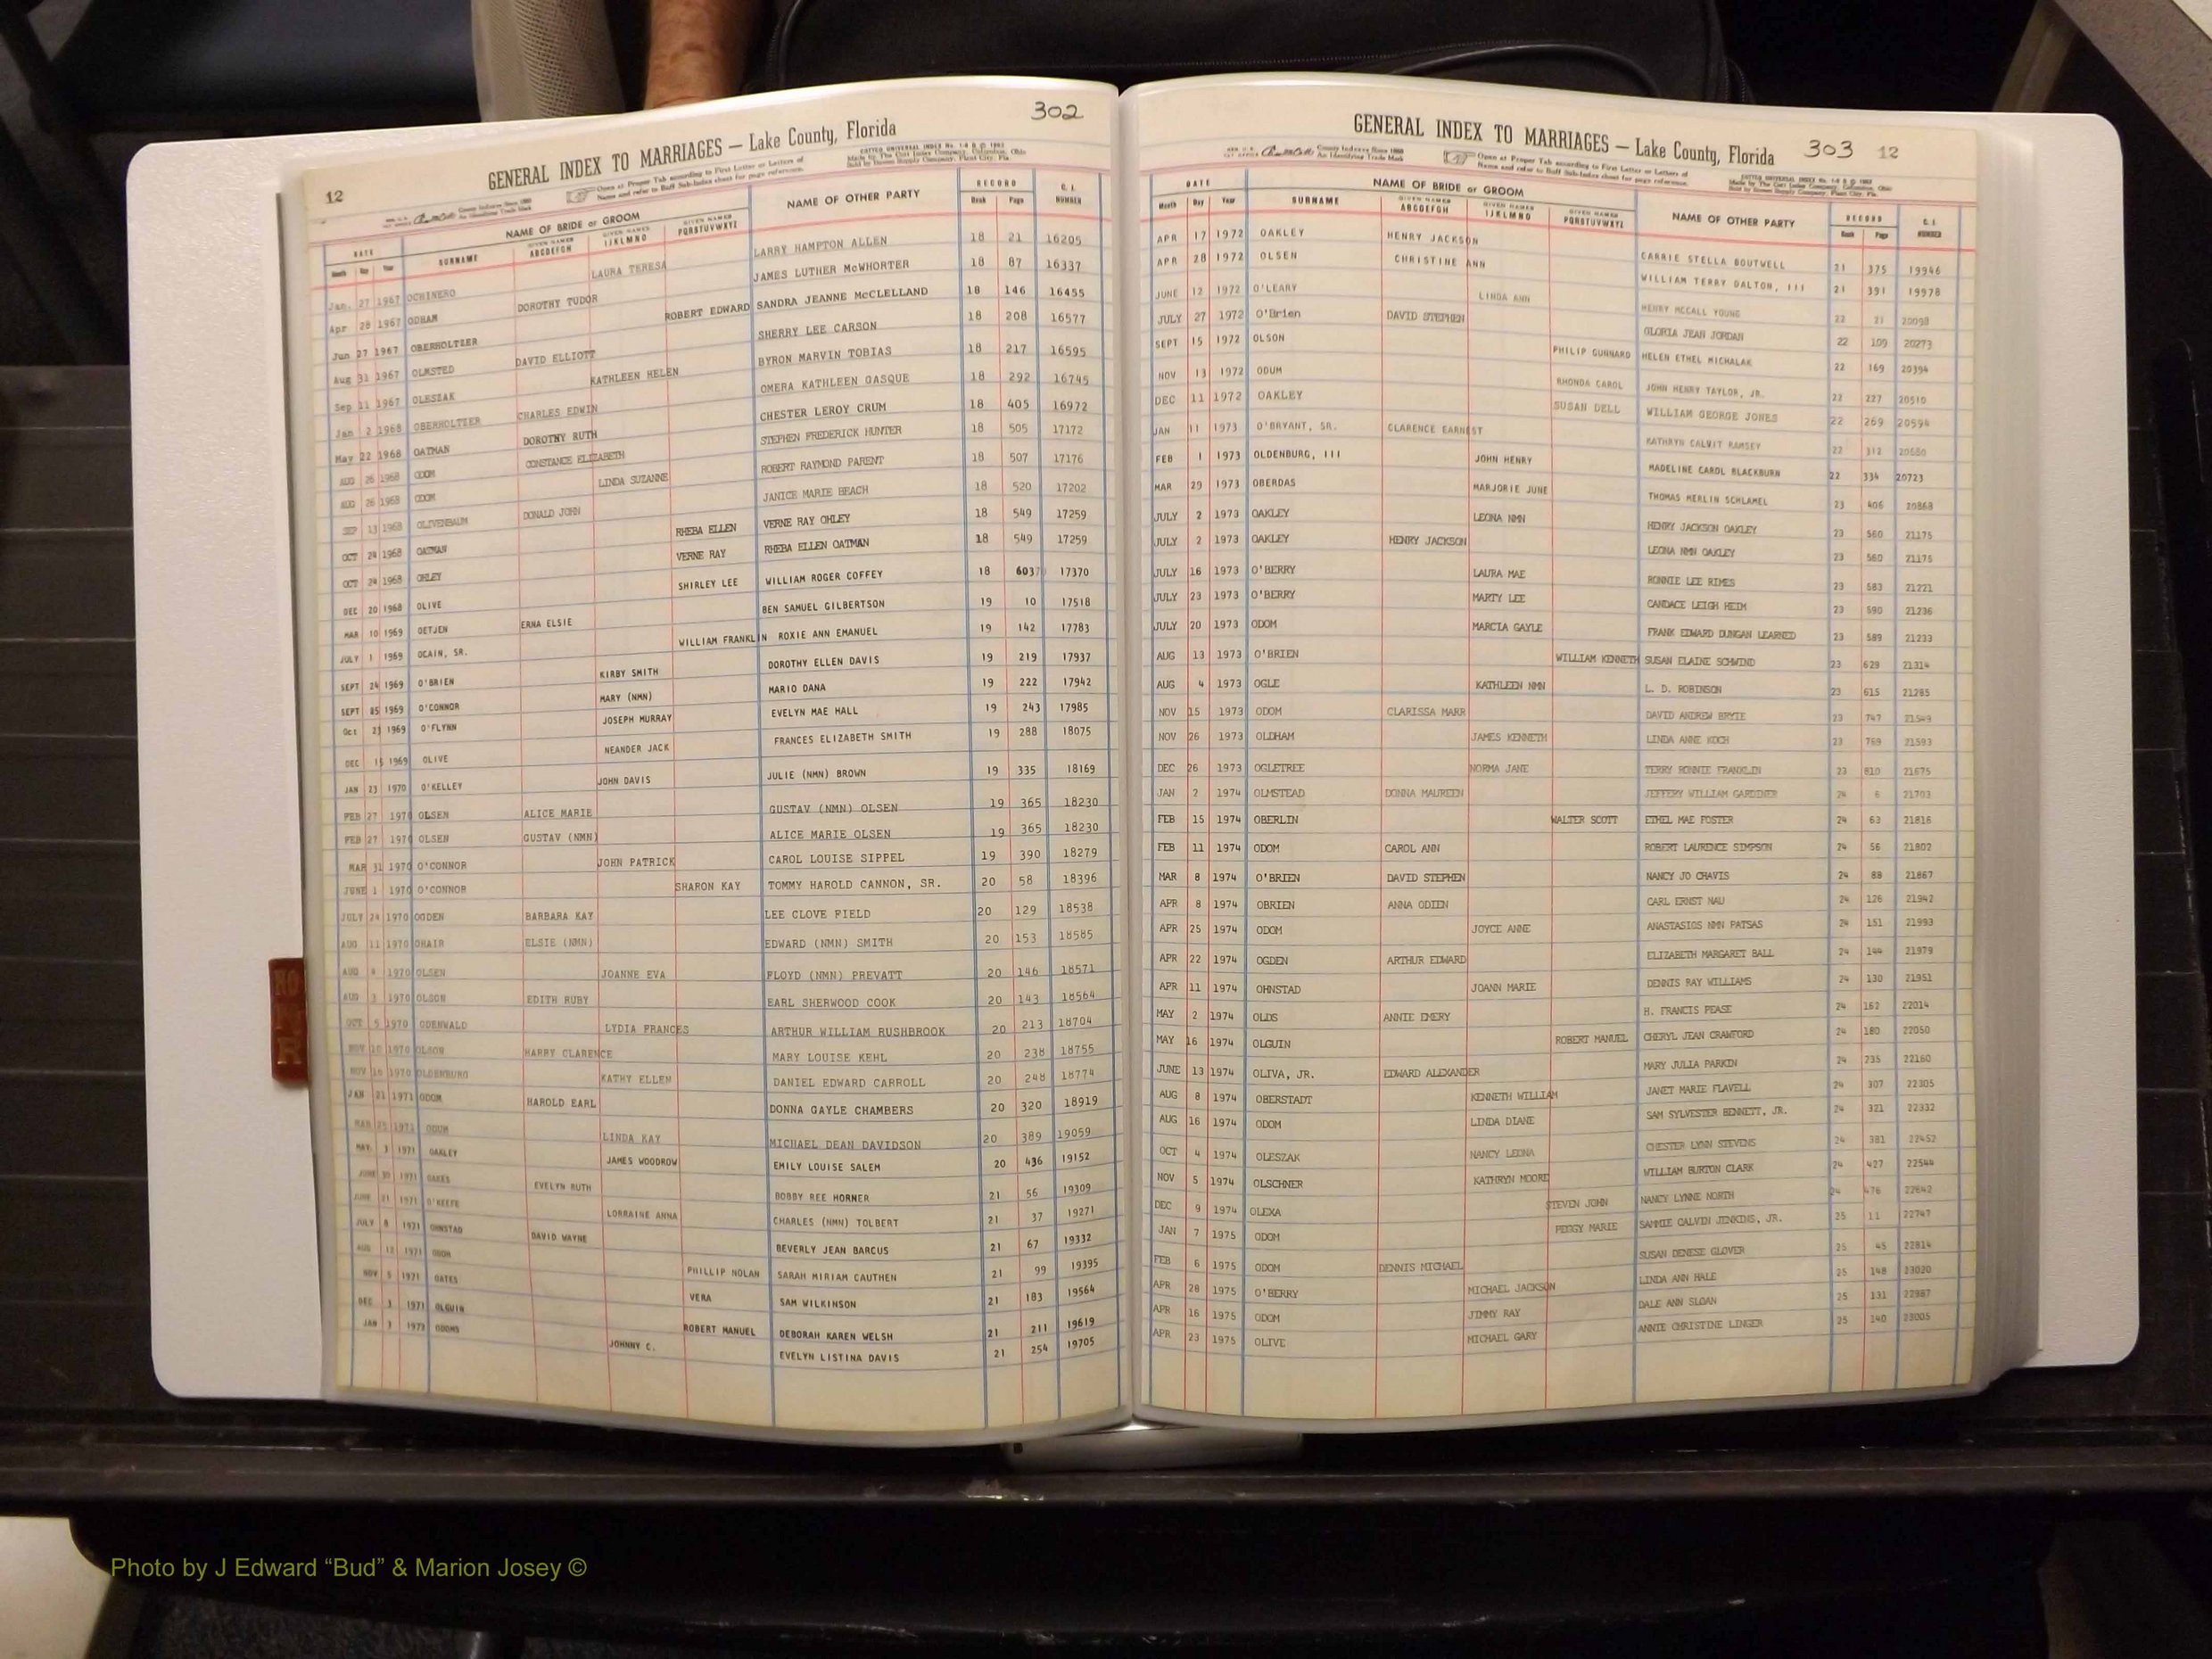 302
12
GENERAL INDEX TO MARRIAGES — Lake County, Florida
Open at Proper Tab according to First Letter or Letters of
Name and refer to Buff Sub-Index sheet for page reference.
DATE NAME OF BRIDE or GROOM NAME OF OTHER PARTY RECORD C. I.
Month Day Year SURNAME GIVEN NAMES ABCDEFGH GIVEN NAMES IJKLMNO GIVEN NAMES PQRSTUVWXYZ Book Page NUMBER
Jan. 27 1967 OCHINERO LAURA TERESA LARRY HAMPTON ALLEN 18 21 16205
Apr 28 1967 ODHAM DOROTHY TUDOR JAMES LUTHER McWHORTER 18 87 16337
Jun 27 1967 OBERHOLTZER ROBERT EDWARD SANDRA JEANNE McCLELLAND 18 146 16455
Aug 31 1967 OLMSTED DAVID ELLIOTT SHERRY LEE CARSON 18 208 16577
Sep 11 1967 OLESZAK KATHLEEN HELEN BYRON MARVIN TOBIAS 18 217 16595
Jan 2 1968 OBERHOLTZER CHARLES EDWIN OMERA KATHLEEN GASQUE 18 292 16745
May 22 1968 OATMAN DOROTHY RUTH CHESTER LEROY CRUM 18 405 16972
AUG 26 1968 ODOM CONSTANCE ELIZABETH STEPHEN FREDERICK HUNTER 18 505 17172
AUG 26 1968 ODOM LINDA SUZANNE ROBERT RAYMOND PARENT 18 507 17176
SEP 13 1968 OLIVENBAUM DONALD JOHN JANICE MARIE BEACH 18 520 17202
OCT 24 1968 OATMAN RHEBA ELLEN VERNE RAY OHLEY 18 549 17259
OCT 24 1968 OHLEY VERNE RAY RHEBA ELLEN OATMAN 18 549 17259
DEC 20 1968 OLIVE SHIRLEY LEE WILLIAM ROGER COFFEY 18 603 17370
MAR 10 1969 OETJEN ERNA ELSIE BEN SAMUEL GILBERTSON 19 10 17518
JULY 1 1969 OCAIN, SR. WILLIAM FRANKLIN ROXIE ANN EMANUEL 19 142 17783
SEPT 24 1969 O'BRIEN KIRBY SMITH DOROTHY ELLEN DAVIS 19 219 17937
SEPT 25 1969 O'CONNOR MARY (NMN) MARIO DANA 19 222 17942
Oct 23 1969 O'FLYNN JOSEPH MURRAY EVELYN MAE HALL 19 243 17985
DEC 15 1969 OLIVE NEANDER JACK FRANCES ELIZABETH SMITH 19 288 18075
JAN 23 1970 O'KELLEY JOHN DAVIS JULIE (NMN) BROWN 19 335 18169
FEB 27 1970 OLSEN ALICE MARIE GUSTAV (NMN) OLSEN 19 365 18230
FEB 27 1970 OLSEN GUSTAV (NMN) ALICE MARIE OLSEN 19 365 18230
MAR 31 1970 O'CONNOR JOHN PATRICK CAROL LOUISE SIPPEL 19 390 18279
JUNE 1 1970 O'CONNOR SHARON KAY TOMMY HAROLD CANNON, SR. 20 58 18396
JULY 24 1970 OGDEN BARBARA KAY LEE CLOVE FIELD 20 129 18538
AUG 11 1970 OHAIR ELSIE (NMN) EDWARD (NMN) SMITH 20 153 18585
AUG 4 1970 OLSEN JOANNE EVA FLOYD (NMN) PREVATT 20 146 18571
AUG 3 1970 OLSON EDITH RUBY EARL SHERWOOD COOK 20 143 18564
OCT 5 1970 ODENWALD LYDIA FRANCES ARTHUR WILLIAM RUSHBROOK 20 213 18704
NOV 10 1970 OLSON HARRY CLARENCE MARY LOUISE KEHL 20 238 18755
NOV 16 1970 OLDENBURG KATHY ELLEN DANIEL EDWARD CARROLL 20 248 18774
JAN 21 1971 ODOM HAROLD EARL DONNA GAYLE CHAMBERS 20 320 18919
MAR 25 1971 ODUM LINDA KAY MICHAEL DEAN DAVIDSON 20 389 19059
MAY 3 1971 OAKLEY JAMES WOODROW EMILY LOUISE SALEM 20 436 19152
JUNE 30 1971 OAKES EVELYN RUTH BOBBY REE HORNER 21 56 19309
JUNE 21 1971 O'KEEFE LORRAINE ANNA CHARLES (NMN) TOLBERT 21 37 19271
JULY 8 1971 OHNSTAD DAVID WAYNE BEVERLY JEAN BARCUS 21 67 19332
AUG 12 1971 ODOM PHILLIP NOLAN SARAH MIRIAM CAUTHEN 21 99 19395
NOV 5 1971 OATES VERA SAM WILKINSON 21 183 19564
DEC 3 1971 OLGUIN ROBERT MANUEL DEBORAH KAREN WELSH 21 211 19619
JAN 3 1972 ODOMS JOHNNY C. EVELYN LISTINA DAVIS 21 254 19705
GENERAL INDEX TO MARRIAGES — Lake County, Florida 303 12
Open at Proper Tab according to First Letter or Letters of
Name and refer to Buff Sub-Index sheet for page reference.
DATE NAME OF BRIDE or GROOM NAME OF OTHER PARTY RECORD C. I.
Month Day Year SURNAME GIVEN NAMES ABCDEFGH GIVEN NAMES IJKLMNO GIVEN NAMES PQRSTUVWXYZ Book Page NUMBER
APR 17 1972 OAKLEY HENRY JACKSON CARRIE STELLA BOUTWELL 21 375 19946
APR 28 1972 OLSEN CHRISTINE ANN WILLIAM TERRY DALTON, III 21 391 19978
JUNE 12 1972 O'LEARY LINDA ANN HENRY MCCALL YOUNG 22 21 20098
JULY 27 1972 O'Brien DAVID STEPHEN GLORIA JEAN JORDAN 22 109 20273
SEPT 15 1972 OLSON PHILIP GUNNARD HELEN ETHEL MICHALAK 22 169 20394
NOV 13 1972 ODUM RHONDA CAROL JOHN HENRY TAYLOR, JR. 22 227 20510
DEC 11 1972 OAKLEY SUSAN DELL WILLIAM GEORGE JONES 22 269 20594
JAN 11 1973 O'BRYANT, SR. CLARENCE EARNEST KATHRYN CALWIT RAMSEY 22 312 20680
FEB 1 1973 OLDENBURG, III JOHN HENRY MADELINE CAROL BLACKBURN 22 334 20723
MAR 29 1973 OBERDAS MARJORIE JUNE THOMAS MERLIN SCHLAMEL 23 406 20868
JULY 2 1973 OAKLEY LEONA NMN HENRY JACKSON OAKLEY 23 560 21175
JULY 2 1973 OAKLEY HENRY JACKSON LEONA NMN OAKLEY 23 560 21175
JULY 16 1973 O'BERRY LAURA MAE RONNIE LEE RIMES 23 583 21221
JULY 23 1973 O'BERRY MARTY LEE CANDACE LEIGH HEIM 23 590 21236
JULY 20 1973 ODOM MARCIA GAYLE FRANK EDWARD DUNGAN LEARNED 23 589 21233
AUG 13 1973 O'BRIEN WILLIAM KENNETH SUSAN ELAINE SCHWIND 23 629 21314
AUG 4 1973 OGLE KATHLEEN NMN L. D. ROBINSON 23 615 21285
NOV 15 1973 ODOM CLARISSA MARR DAVID ANDREW BRYTE 23 747 21549
NOV 26 1973 OLDHAM JAMES KENNETH LINDA ANNE KOCH 23 769 21593
DEC 26 1973 OGLETREE NORMA JANE TERRY RONNIE FRANKLIN 23 810 21675
JAN 2 1974 OLMSTEAD DONNA MAUREEN JEFFERY WILLIAM GARDINER 24 6 21703
FEB 15 1974 OBERLIN WALTER SCOTT ETHEL MAE FOSTER 24 63 21816
FEB 11 1974 ODOM CAROL ANN ROBERT LAURENCE SIMPSON 24 56 21802
MAR 8 1974 O'BRIEN DAVID STEPHEN NANCY JO CHAVIS 24 88 21867
APR 8 1974 OBRIEN ANNA ODIEN CARL ERNST NAU 24 126 21942
APR 25 1974 ODOM JOYCE ANNE ANASTASIOS NMN PATSAS 24 151 21993
APR 22 1974 OGDEN ARTHUR EDWARD ELIZABETH MARGARET BALL 24 144 21979
APR 11 1974 OHNSTAD JOANN MARIE DENNIS RAY WILLIAMS 24 130 21951
MAY 2 1974 OLDS ANNIE EMERY H. FRANCIS PEASE 24 162 22014
MAY 16 1974 OLGUIN ROBERT MANUEL CHERYL JEAN CRAWFORD 24 180 22050
JUNE 13 1974 OLIVA, JR. EDWARD ALEXANDER MARY JULIA PARKIN 24 235 22160
AUG 8 1974 OBERSTADT KENNETH WILLIAM JANET MARIE FLAVELL 24 307 22305
AUG 16 1974 ODOM LINDA DIANE SAM SYLVESTER BENNETT, JR. 24 321 22332
OCT 4 1974 OLESZAK NANCY LEONA CHESTER LYNN STEVENS 24 381 22452
NOV 5 1974 OLSCHNER KATHRYN MOORE WILLIAM BURTON CLARK 24 427 22544
DEC 9 1974 OLEXA STEVEN JOHN NANCY LYNNE NORTH 24 476 22642
JAN 7 1975 ODOM PEGGY MARIE SAMMIE CALVIN JENKINS, JR. 25 11 22747
FEB 6 1975 ODOM DENNIS MICHAEL SUSAN DENESE GLOVER 25 45 22814
APR 28 1975 O'BERRY MICHAEL JACKSON LINDA ANN HALE 25 148 23020
APR 16 1975 ODOM JIMMY RAY DALE ANN SLOAN 25 131 22987
APR 23 1975 OLIVE MICHAEL GARY ANNIE CHRISTINE LINGER 25 140 23005
Photo by J Edward “Bud” & Marion Josey ©